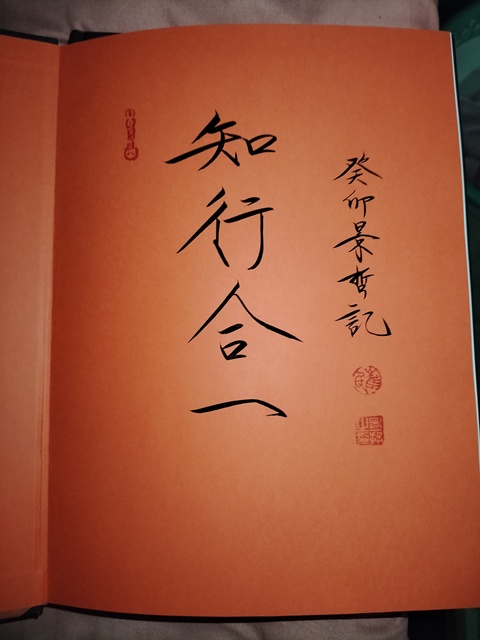 知行合一
癸卯景哲記